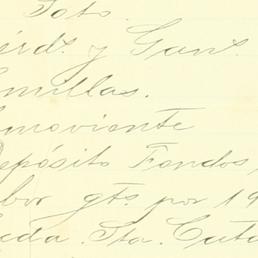 Foto.
érds. y Gans.
emillas.
emoviente
Depósito Fondos
abor gts. por 19
eda. Sta. Cata